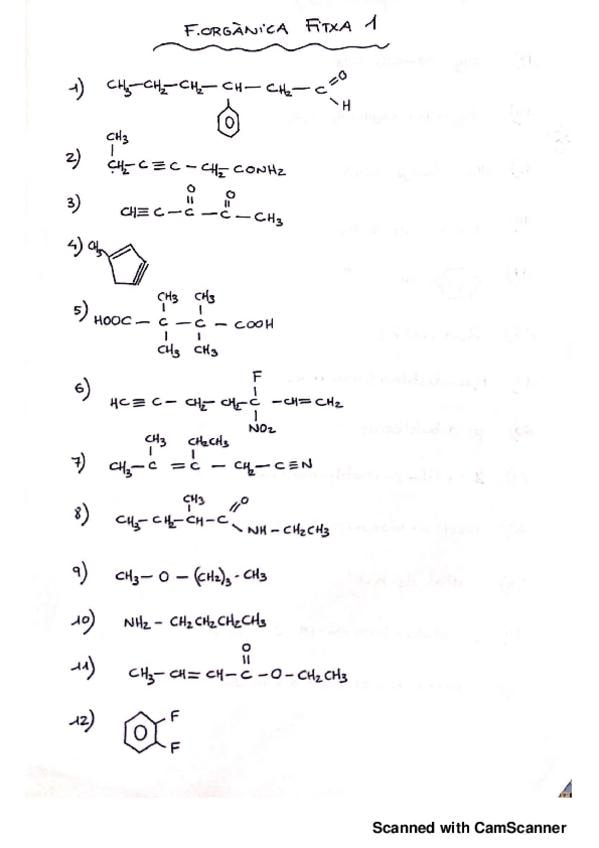 F.ORGÀNICA FITXA 1
1) CH3-CH2-CH2-CH-CH2-C=O
H
CH3
2) CH2-C≡C-CH2-CONH2
O O
3) CH≡C-C-C-CH3
4) CH3
CH3 CH3
5) HOOC-C-C-COOH
CH3 CH3
F
6) HC≡C-CH2-CH2-C-CH=CH2
NO2
CH3 CH2CH3
7) CH3-C=C-CH2-C≡N
CH3 O
8) CH3-CH2-CH-C
NH-CH2CH3
9) CH3-O-(CH2)3-CH3
10) NH2-CH2CH2CH2CH3
O
11) CH3-CH=CH-C-O-CH2CH3
12) F
F
Scanned with CamScanner